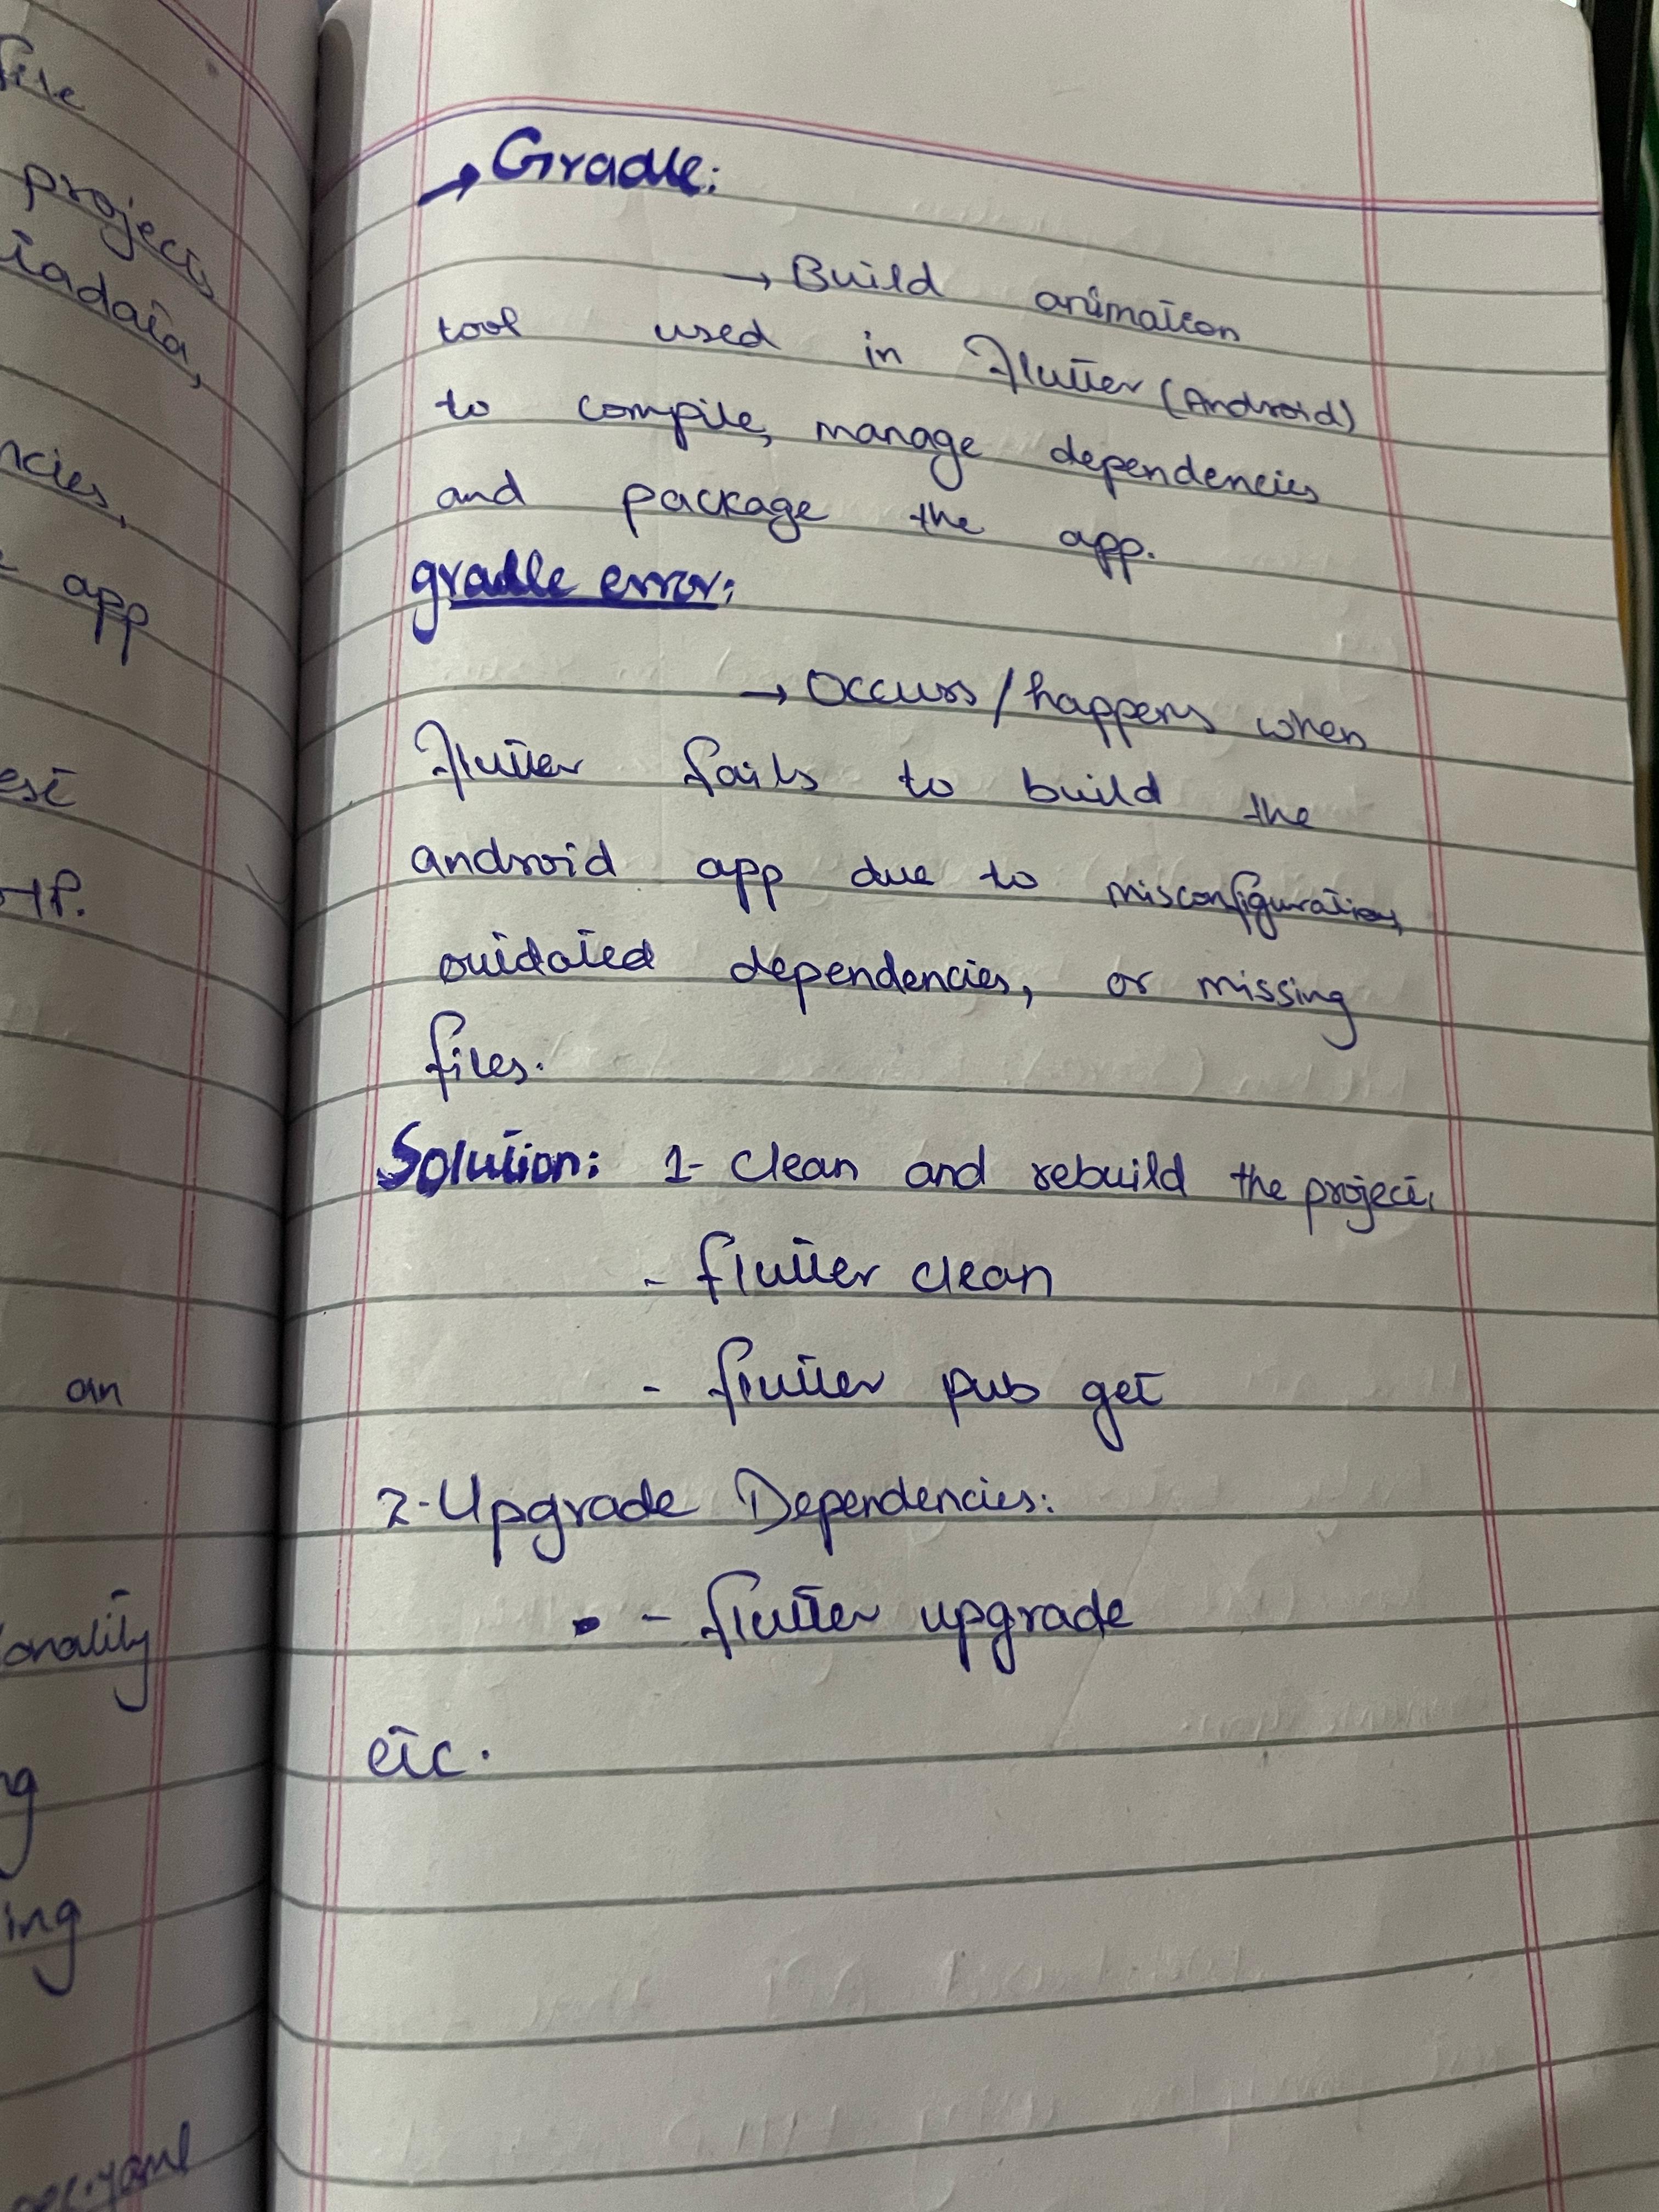 file
projects
tadata,
ncies,
app
est
HP.
an
onality
ng
ing
pec.yaml
→ Gradle:
→ Build animation
tool used in Flutter (Android)
to compile, manage dependencies
and package the app.
gradle error:
→ Occurs/happens when
Flutter fails to build the
android app due to misconfiguration,
outdated dependencies, or missing
files.
Solution: 1- Clean and rebuild the project.
- flutter clean
- flutter pub get
2-Upgrade Dependencies:
- flutter upgrade
etc.